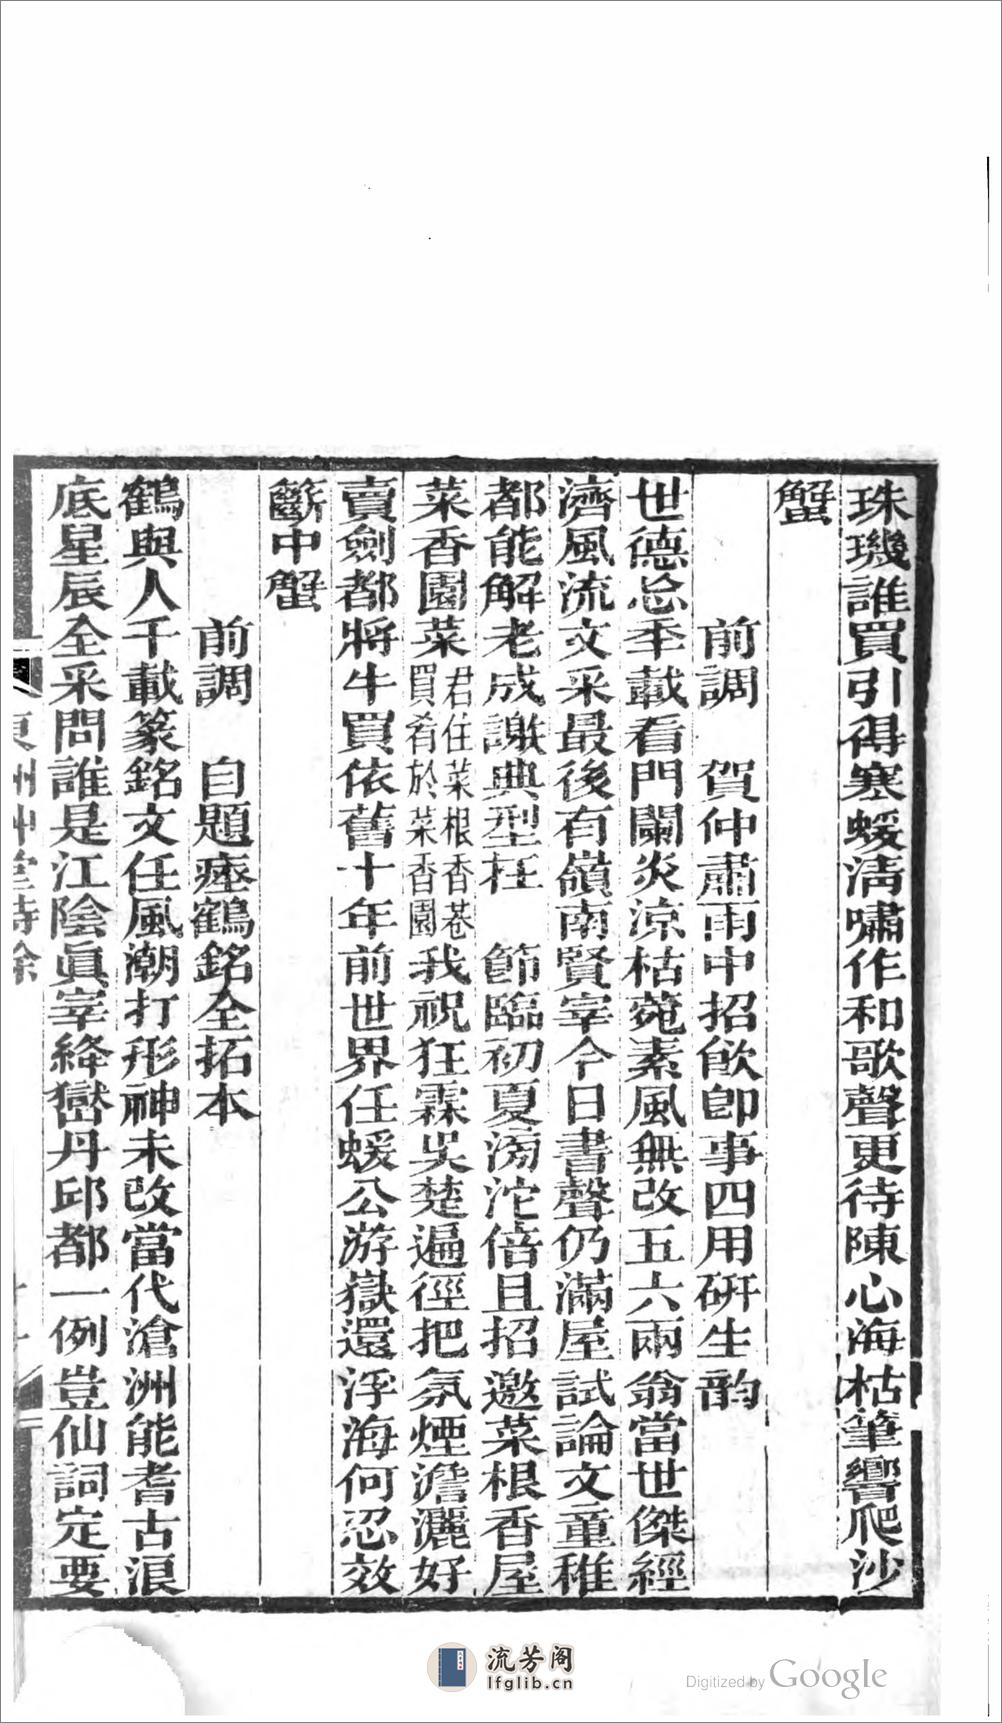 珠璣誰買引得寒蝯淸嘯作和歌聲更待陳心海枯筆響爬沙
蟹
前調　賀仲肅雨中招飮卽事四用硏生韵
世德怱秊載看門闌炎涼枯菀素風無改五六兩翁當世傑經
濟風流文采最後有嶺南賢宰今日書聲仍滿屋試論文童稚
都能解老成謝典型在　節臨初夏滂沱倍且招邀菜根香屋
菜香園菜君住菜根香巷買肴於菜香園我祝狂霖吳楚遍徑把氛煙澹灑好
賣劍都將牛買依舊十年前世界任蝯公游嶽還浮海何忍效
斷中蟹
前調　自題瘞鶴銘全拓本
鶴與人千載篆銘文任風潮打形神未改當代滄洲能耆古浪
底星辰全采問誰是江陰眞宰絳巒丹邱都一例豈仙詞定要
東洲艸堂詩餘